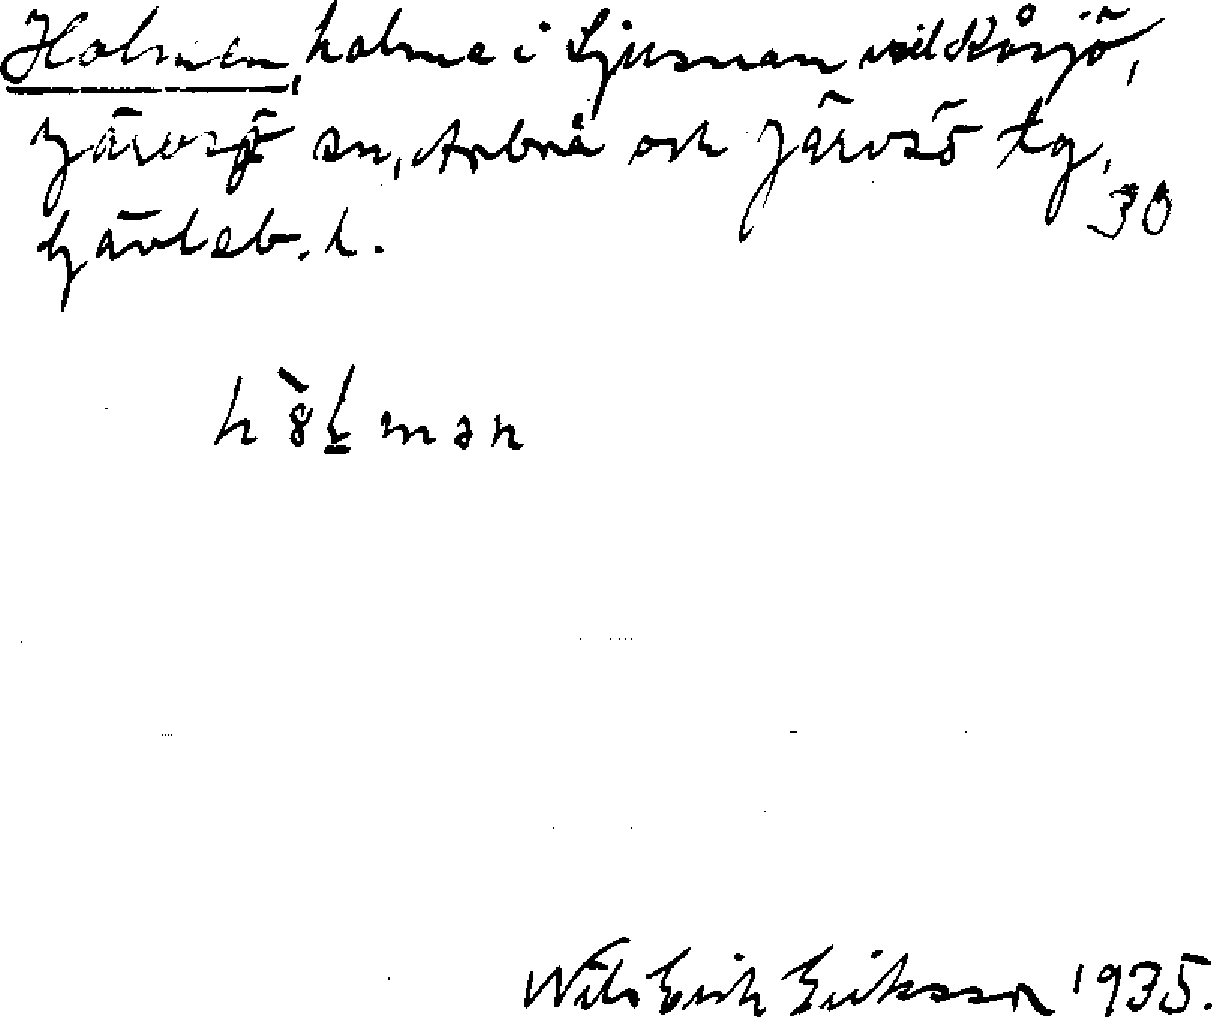 Holmen, holme i Ljusnan vid Kåsjö,
Järvsö sn, Arbrå och Järvsö tg,
30
Gävleb. l.
h 8̀ l̠ m ə n
Nils Erik Eriksson 1935.